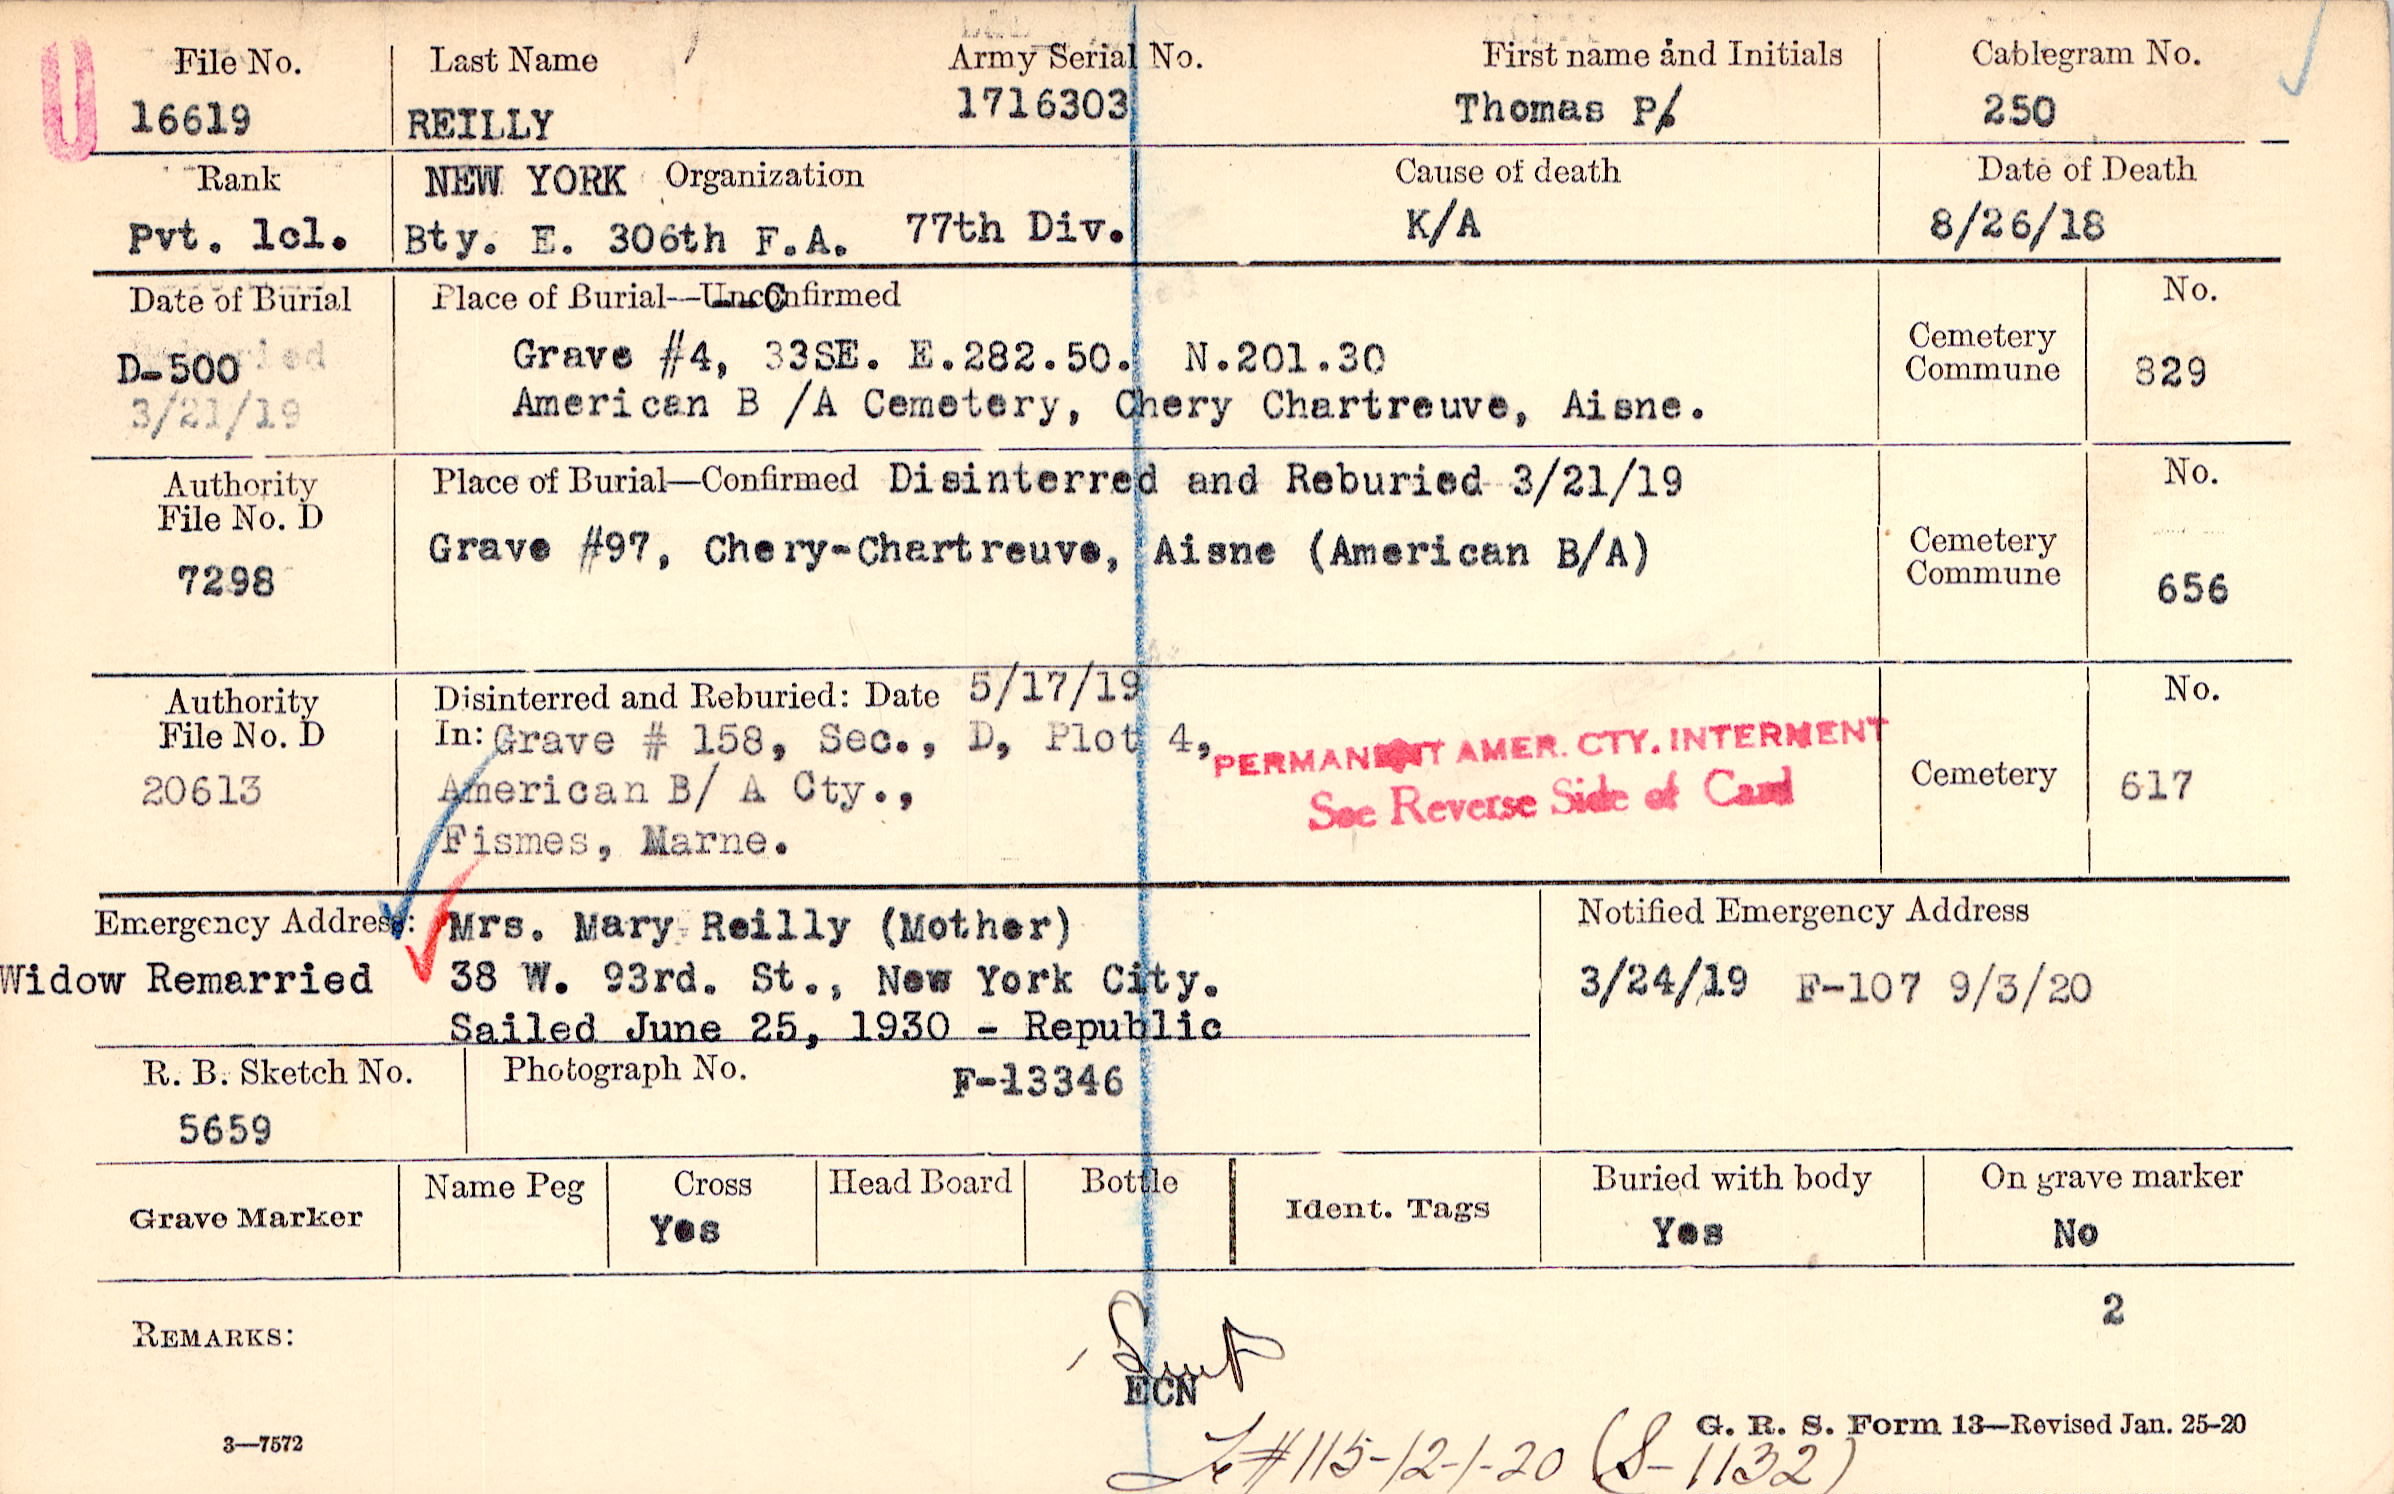 U
File No.
16619
Last Name
REILLY
Army Serial No.
1716303
First name and Initials
Thomas P.
Cablegram No.
250
Rank
Pvt. 1cl.
NEW YORK Organization
Bty. E. 306th F.A. 77th Div.
Cause of death
K/A
Date of Death
8/26/18
Date of Burial
D-500
3/21/19
Place of Burial—UncOnfirmed
Grave #4, 33SE. E.282.50. N.201.30
American B /A Cemetery, Chery Chartreuve, Aisne.
Cemetery
Commune
No.
829
Authority
File No. D
7298
Place of Burial—Confirmed Disinterred and Reburied 3/21/19
Grave #97, Chery-Chartreuve, Aisne (American B/A)
Cemetery
Commune
No.
656
Authority
File No. D
20613
Disinterred and Reburied: Date 5/17/19
In: Grave # 158, Sec., D, Plot 4,
American B/ A Cty.,
Fismes, Marne.
PERMANENT AMER. CTY. INTERMENT
See Reverse Side of Card
Cemetery
No.
617
Emergency Address:
Widow Remarried
Mrs. Mary Reilly (Mother)
38 W. 93rd. St., New York City.
Sailed June 25, 1930 - Republic
Notified Emergency Address
3/24/19 F-107 9/3/20
R. B. Sketch No.
5659
Photograph No.
F-13346
Grave Marker
Name Peg
Cross
Yes
Head Board
Bottle
Ident. Tags
Buried with body
Yes
On grave marker
No
2
REMARKS:
ECN
3—7572
G. R. S. Form 13—Revised Jan. 25-20
#115-12-1-20 (S-1132)